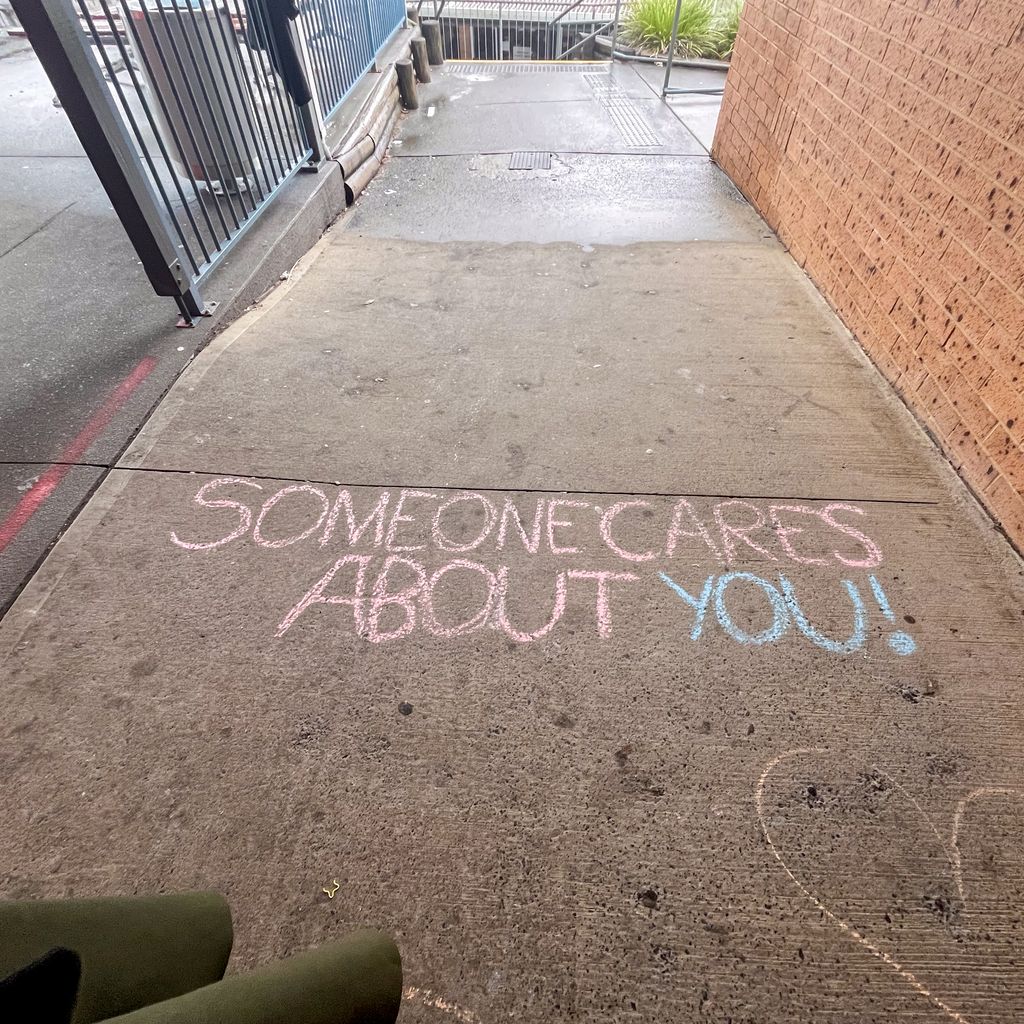 SOMEONE CARES
ABOUT YOU!